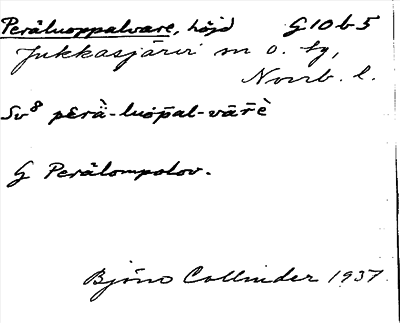 Peräluoppalvare, höjd G10b5
Jukkasjärvi m o. tg,
Norrb. l.
Sv⁸ pɛrä̀-luo̅pal-vārè
G Perälompolov.
Björn Collinder 1937